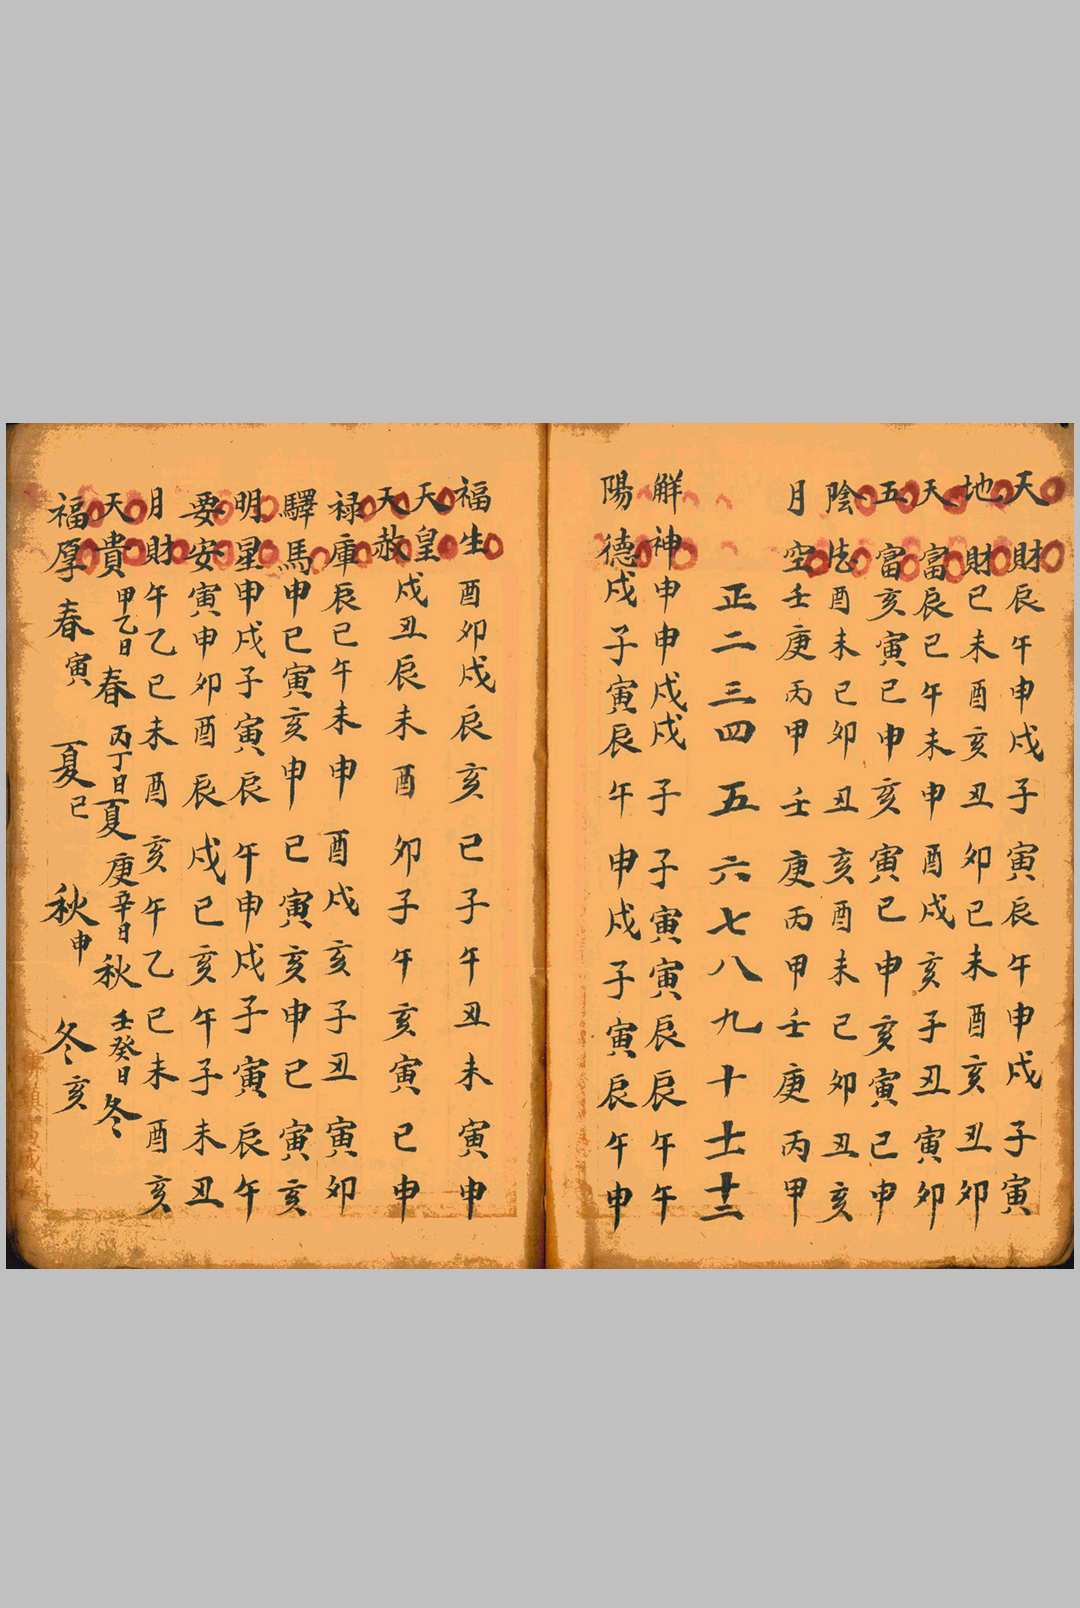 天財辰午申戌子寅辰午申戌子寅
地財巳未酉亥丑卯巳未酉亥丑卯
天富辰巳午未申酉戌亥子丑寅卯
五富亥寅巳申亥寅巳申亥寅巳申
陰德酉未巳卯丑亥酉未巳卯丑亥
月空壬庚丙甲壬庚丙甲壬庚丙甲
正二三四五六七八九十十一十二
解神申申戌戌子子寅寅辰辰午午
陽德戌子寅辰午申戌子寅辰午申
福生酉卯戌辰亥巳子午丑未寅申
天皇
天赦戌丑辰未酉卯子午亥寅巳申
禄庫辰巳午未申酉戌亥子丑寅卯
驛馬申巳寅亥申巳寅亥申巳寅亥
明星申戌子寅辰午申戌子寅辰午
要安寅申卯酉辰戌巳亥午子未丑
月財午乙巳未酉亥午乙巳未酉亥
天貴甲乙日春丙丁日夏庚辛日秋壬癸日冬
福厚春寅夏巳秋申冬亥